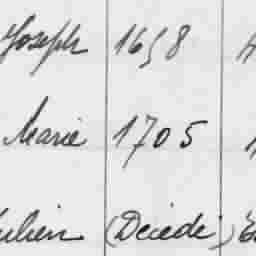 Joseph 1658
Marie 1705
Julien (Décédé)